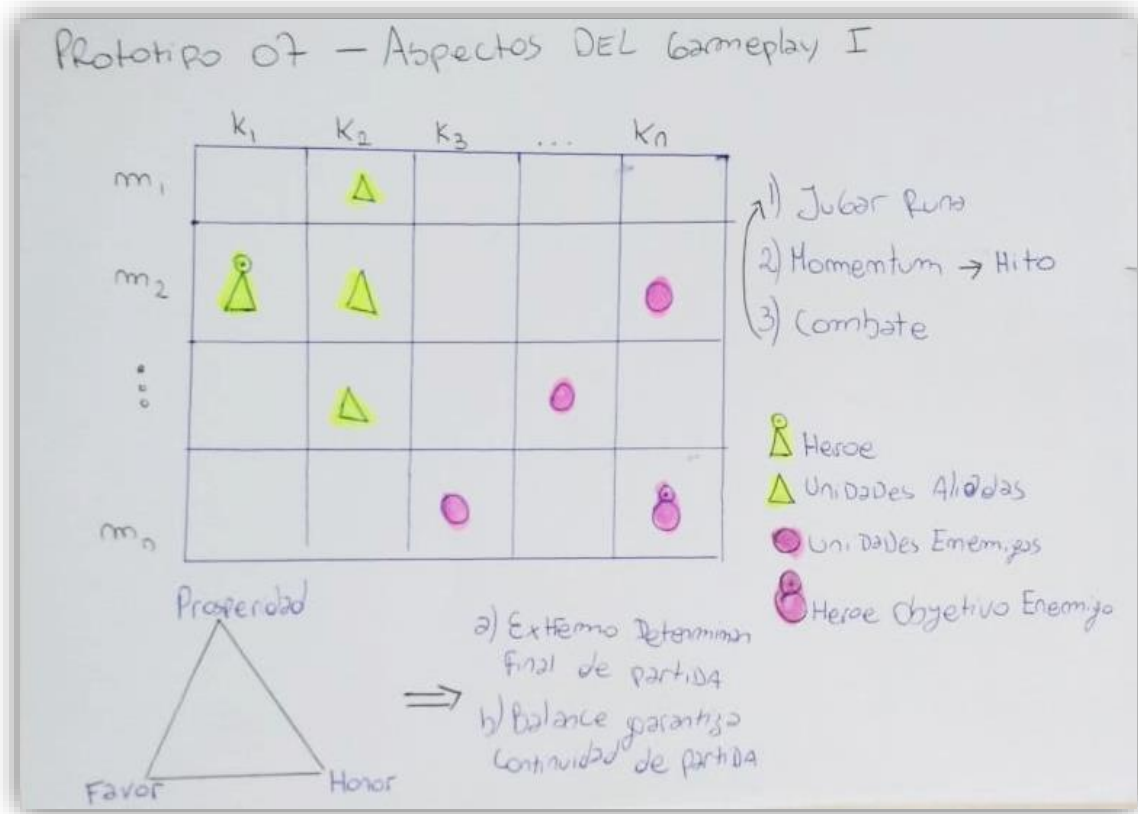 Prototipo 07 – Aspectos DEL Gameplay I
K1 K2 K3 ... Kn
m1
m2
mn
1) Jugar Runa
2) Momentum → Hito
3) Combate
Heroe
Unidades Aliadas
Unidades Enemigas
Heroe Obgetivo Enemigo
Prosperidad
Favor
Honor
a) Extremo Determinan
final de partida
b) Balance garantiza
Continuidad de partida